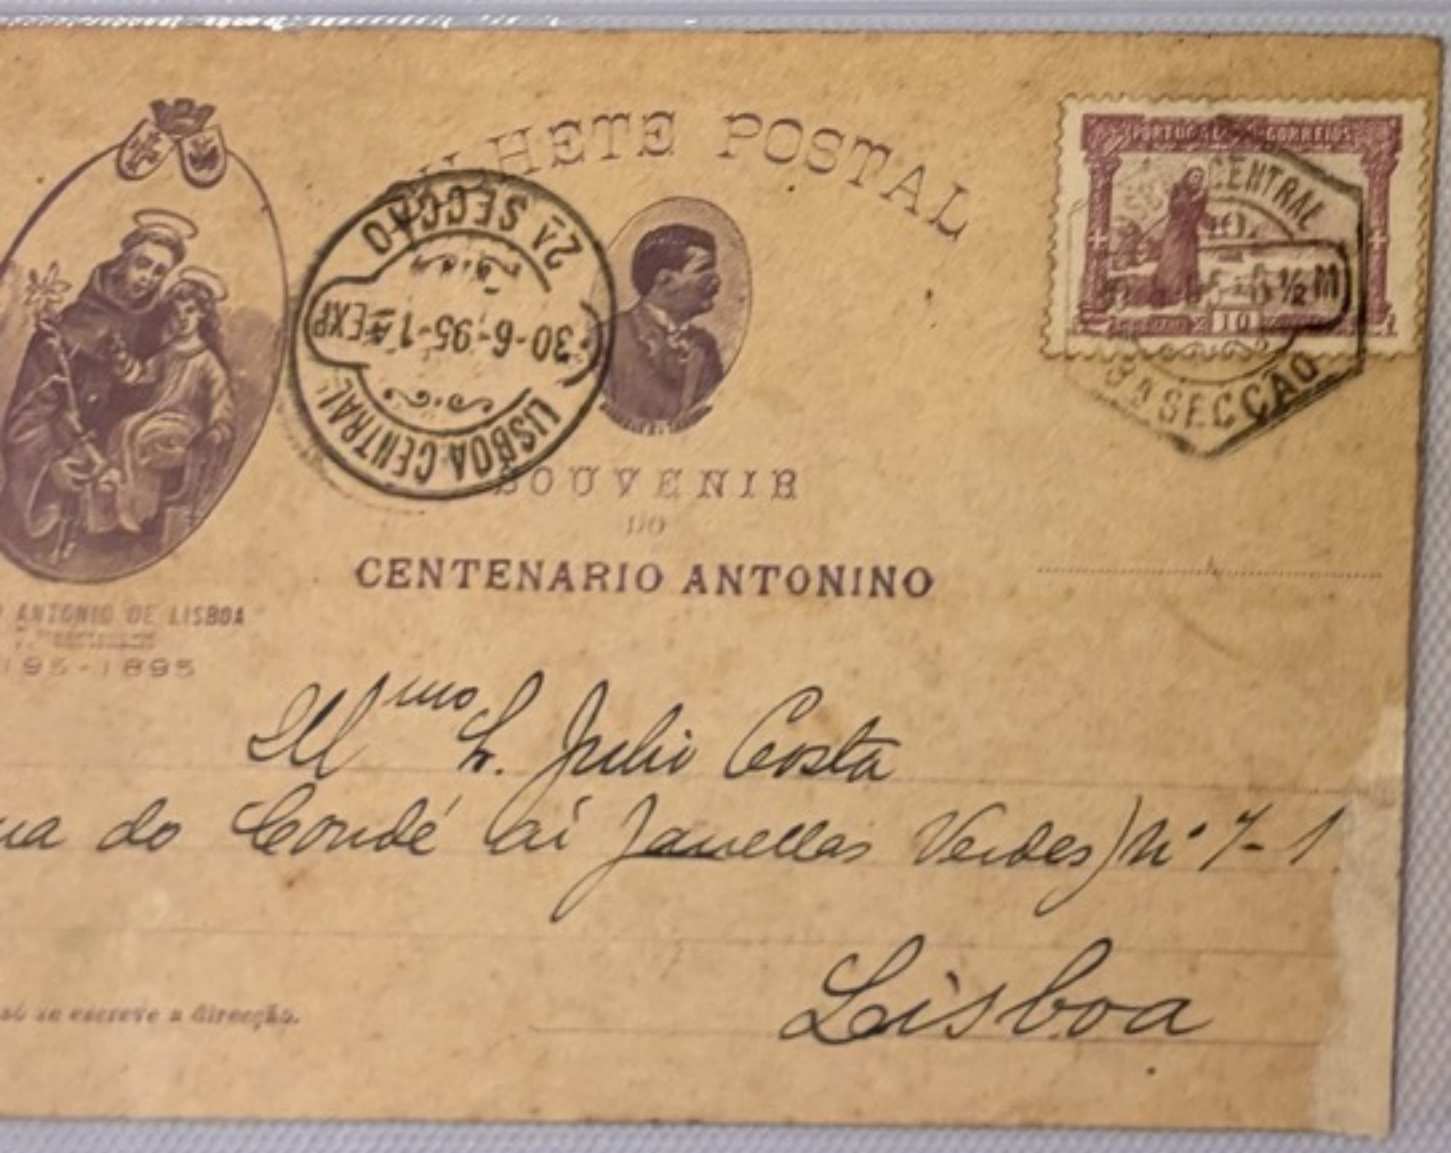 BILHETE POSTAL
PORTUGAL CORREIOS
10
CENTRAL
½ M
3A SECÇÃO
2A SECCÃO
30-6-95-1A EXP
LISBOA CENTRAL
SOUVENIR
DO
CENTENARIO ANTONINO
ANTONIO DE LISBOA
195-1895
Illmo Sr. Julio Costa
ua do Condé (ás Janellas Verdes) Nº 7-1
Lisboa
só se escreve a direcção.